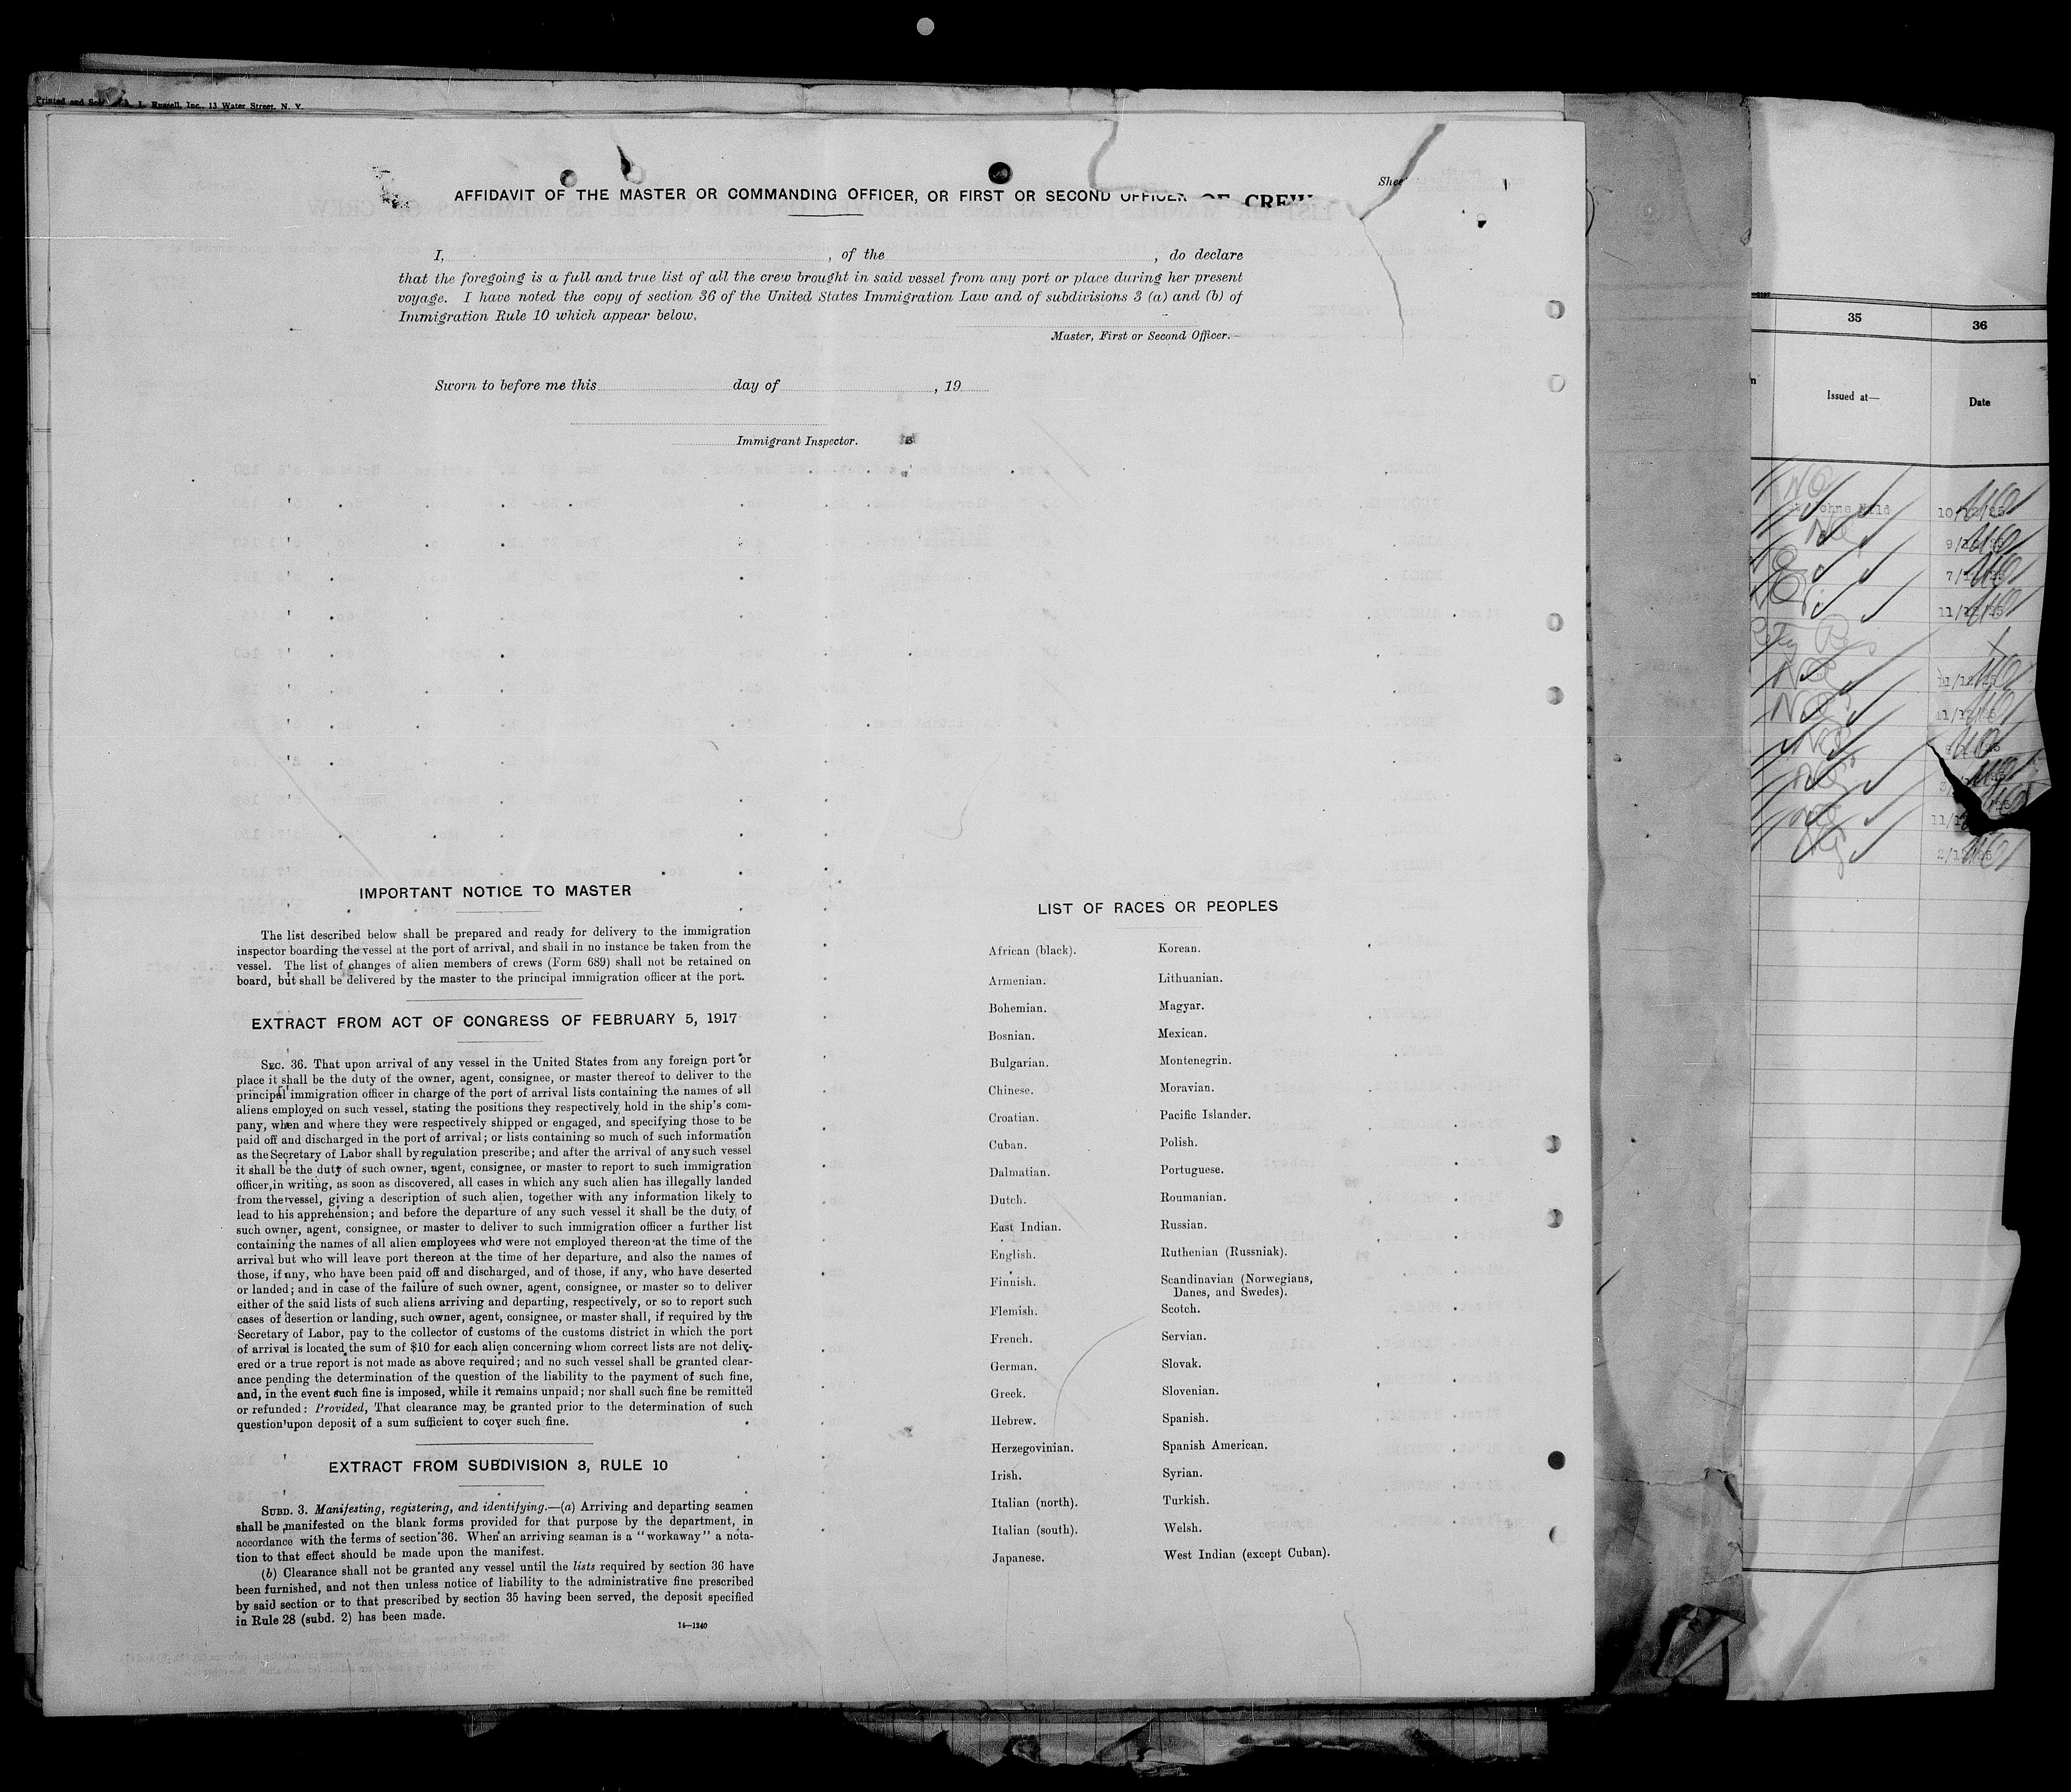 Printed and Sold L. Russell, Inc., 13 Water Street, N. Y.
Shee
AFFIDAVIT OF THE MASTER OR COMMANDING OFFICER, OR FIRST OR SECOND OFFICER OF CREW
I, , of the , do declare
that the foregoing is a full and true list of all the crew brought in said vessel from any port or place during her present
voyage. I have noted the copy of section 36 of the United States Immigration Law and of subdivisions 3 (a) and (b) of
Immigration Rule 10 which appear below.
Master, First or Second Officer.
Sworn to before me this day of , 19
Immigrant Inspector.
IMPORTANT NOTICE TO MASTER
The list described below shall be prepared and ready for delivery to the immigration
inspector boarding the vessel at the port of arrival, and shall in no instance be taken from the
vessel. The list of changes of alien members of crews (Form 689) shall not be retained on
board, but shall be delivered by the master to the principal immigration officer at the port.
EXTRACT FROM ACT OF CONGRESS OF FEBRUARY 5, 1917
SEC. 36. That upon arrival of any vessel in the United States from any foreign port or
place it shall be the duty of the owner, agent, consignee, or master thereof to deliver to the
principal immigration officer in charge of the port of arrival lists containing the names of all
aliens employed on such vessel, stating the positions they respectively hold in the ship's com-
pany, when and where they were respectively shipped or engaged, and specifying those to be
paid off and discharged in the port of arrival; or lists containing so much of such information
as the Secretary of Labor shall by regulation prescribe; and after the arrival of any such vessel
it shall be the duty of such owner, agent, consignee, or master to report to such immigration
officer, in writing, as soon as discovered, all cases in which any such alien has illegally landed
from the vessel, giving a description of such alien, together with any information likely to
lead to his apprehension; and before the departure of any such vessel it shall be the duty of
such owner, agent, consignee, or master to deliver to such immigration officer a further list
containing the names of all alien employees who were not employed thereon at the time of the
arrival but who will leave port thereon at the time of her departure, and also the names of
those, if any, who have been paid off and discharged, and of those, if any, who have deserted
or landed; and in case of the failure of such owner, agent, consignee, or master so to deliver
either of the said lists of such aliens arriving and departing, respectively, or so to report such
cases of desertion or landing, such owner, agent, consignee, or master shall, if required by the
Secretary of Labor, pay to the collector of customs of the customs district in which the port
of arrival is located the sum of $10 for each alien concerning whom correct lists are not deliv-
ered or a true report is not made as above required; and no such vessel shall be granted clear-
ance pending the determination of the question of the liability to the payment of such fine,
and, in the event such fine is imposed, while it remains unpaid; nor shall such fine be remitted
or refunded: Provided, That clearance may be granted prior to the determination of such
question upon deposit of a sum sufficient to cover such fine.
EXTRACT FROM SUBDIVISION 3, RULE 10
SUBD. 3. Manifesting, registering, and identifying.—(a) Arriving and departing seamen
shall be manifested on the blank forms provided for that purpose by the department, in
accordance with the terms of section 36. When an arriving seaman is a "workaway" a nota-
tion to that effect should be made upon the manifest.
(b) Clearance shall not be granted any vessel until the lists required by section 36 have
been furnished, and not then unless notice of liability to the administrative fine prescribed
by said section or to that prescribed by section 35 having been served, the deposit specified
in Rule 28 (subd. 2) has been made.
14—1240
LIST OF RACES OR PEOPLES
African (black).
Armenian.
Bohemian.
Bosnian.
Bulgarian.
Chinese.
Croatian.
Cuban.
Dalmatian.
Dutch.
East Indian.
English.
Finnish.
Flemish.
French.
German.
Greek.
Hebrew.
Herzegovinian.
Irish.
Italian (north).
Italian (south).
Japanese.
Korean.
Lithuanian.
Magyar.
Mexican.
Montenegrin.
Moravian.
Pacific Islander.
Polish.
Portuguese.
Roumanian.
Russian.
Ruthenian (Russniak).
Scandinavian (Norwegians,
Danes, and Swedes).
Scotch.
Servian.
Slovak.
Slovenian.
Spanish.
Spanish American.
Syrian.
Turkish.
Welsh.
West Indian (except Cuban).
35
36
Issued at—
Date